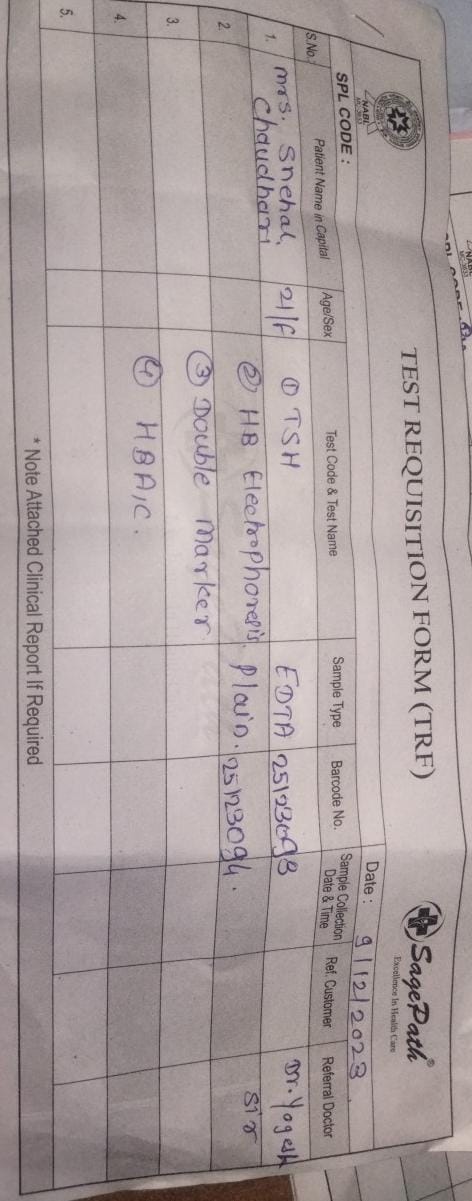 NABL
MC-3633
TEST REQUISITION FORM (TRF)
SagePath®
Excellence In Health Care
SPL CODE :
Date : 9/12/2023
S.No. Patient Name in Capital Age/Sex Test Code & Test Name Sample Type Barcode No. Sample Collection Date & Time Ref. Customer Referral Doctor
1. Mrs. Snehal 21/F ① TSH EDTA 25123093 Dr. Yogesh
Chaudhari ② HB Electrophoresis. Plain. 25123094. Sir
2.
③ Double Marker
3.
④ HBA1C.
4.
5.
* Note Attached Clinical Report If Required